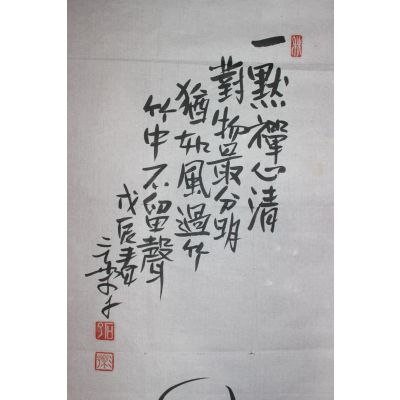 一默禪心清
對物最分明
猶如風過竹
竹中不留聲
戊辰春